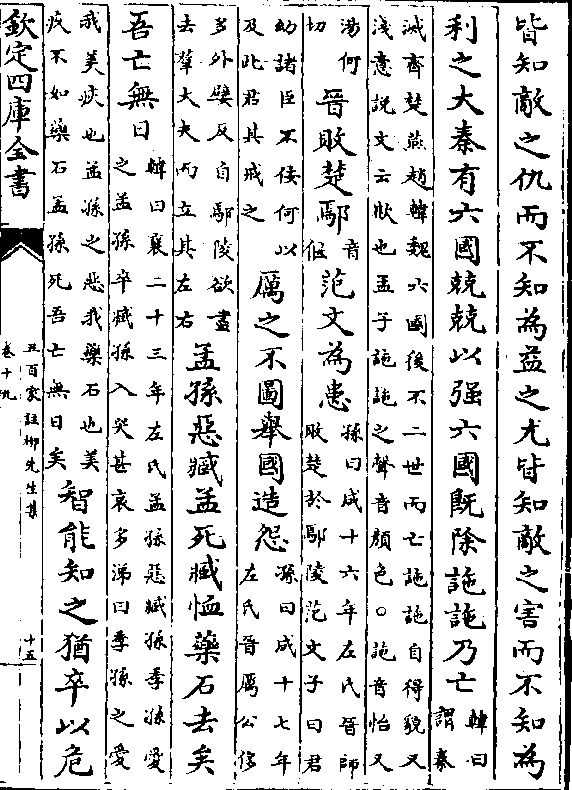 皆知敵之仇而不知為益之尤皆知敵之害而不知為
利之大秦有六國兢兢以强六國既除訑訑乃亡
韓曰
謂秦
滅齊楚燕趙韓魏六國後不二世而亡訑訑自得貌又
淺意說文云欺也孟子訑訑之聲音顔色○訑音怡又
湯何
切
晉敗楚鄢
音
偃
范文為患
孫曰成十六年左氏晉師
敗楚於鄢陵范文子曰君
幼諸臣不佞何以
及此君其戒之
厲之不圖舉國造怨
孫曰成十七年
左氏晉厲公侈
多外嬖反自鄢陵欲盡
去羣大夫而立其左右
孟孫惡臧孟死臧恤藥石去矣
吾亡無日
韓曰襄二十三年左氏孟孫惡臧孫季孫愛
之孟孫卒臧孫入哭甚哀多涕曰季孫之愛
我美疢也孟孫之惡我藥石也美
疢不如藥石孟孫死吾亡無日矣
智能知之猶卒以危
欽定四庫全書
五百家註柳先生集
卷十九
十五